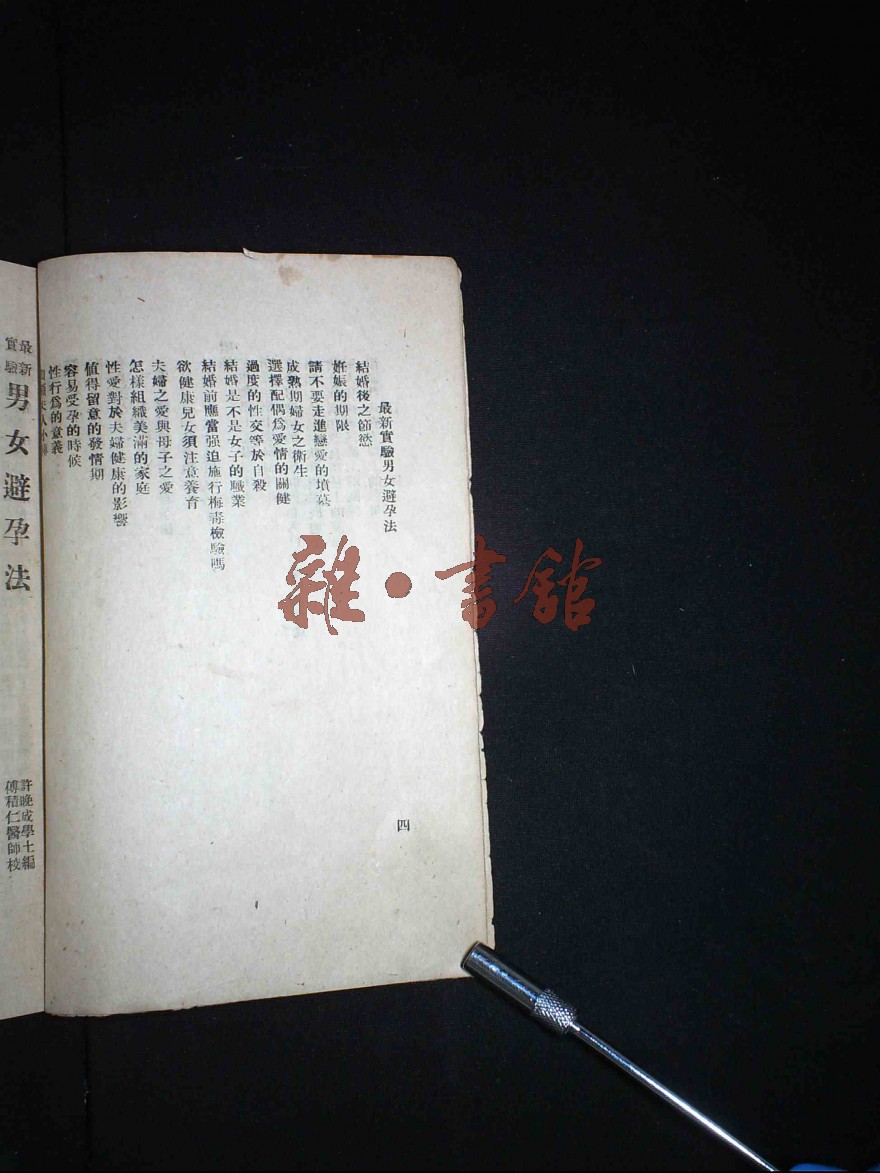 最新實驗男女避孕法
四
結婚後之節慾
妊娠的期限
請不要走進戀愛的墳墓
成熟期婦女之衛生
選擇配偶爲愛情的關健
過度的性交等於自殺
結婚是不是女子的職業
結婚前應當强迫施行梅毒檢驗嗎
欲健康兒女須注意養育
夫婦之愛與母子之愛
怎樣組織美滿的家庭
性愛對於夫婦健康的影響
値得留意的發情期
容易受孕的時候
性行爲的意義
夫人小
最新實驗男女避孕法
許晚成學士編
傅積仁醫師校
雜·書館